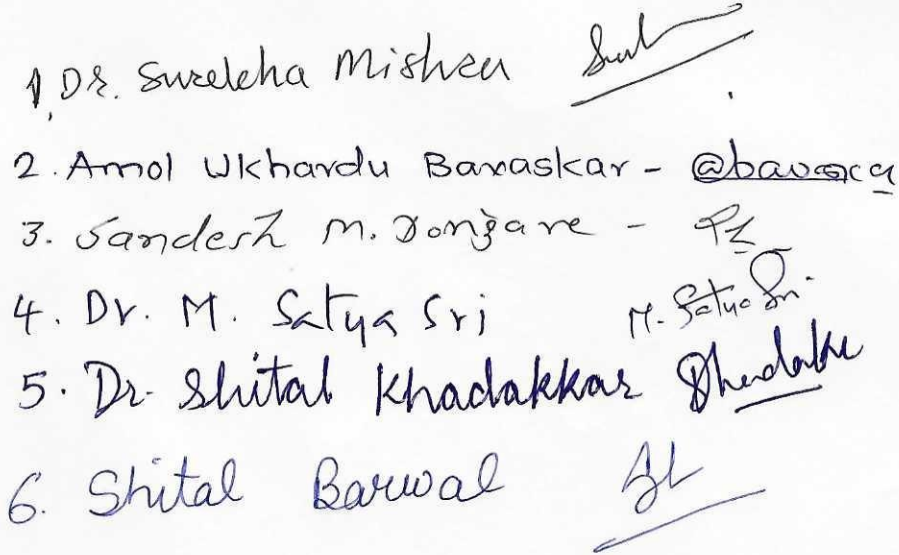 1, Dr. Surekha Mishra
2. Amol Ukhardu Bavaskar - @bavasca
3. Sandesh M. Dongare -
4. Dr. M. Satya Sri M. Satya Sri.
5. Dr. Shital Khadakkar
6. Shital Barwal